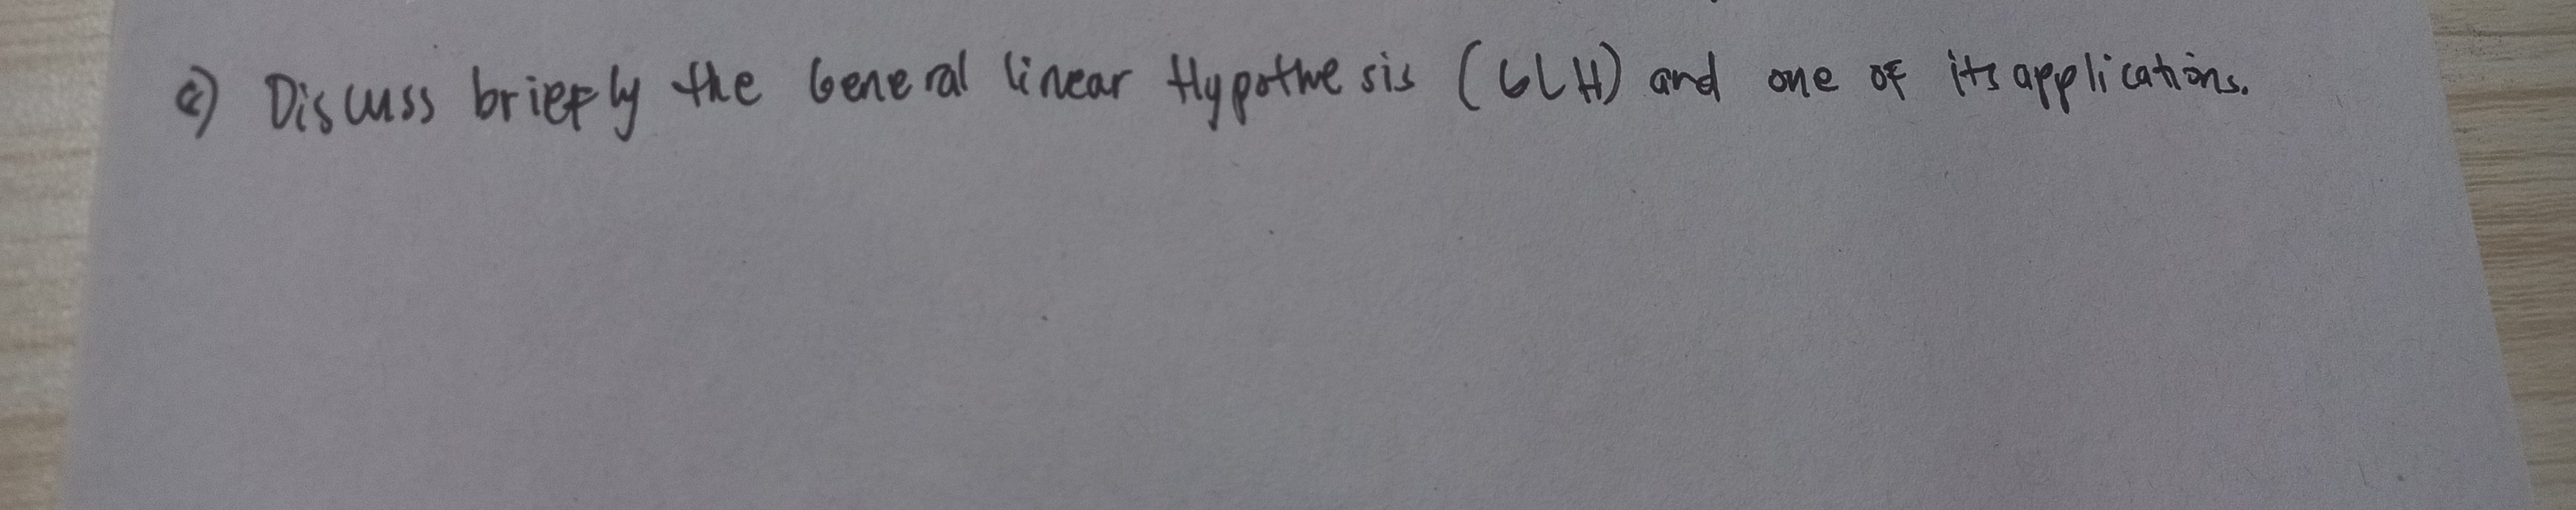 c) Discuss briefly the General linear Hypothesis (GLH) and one of its applications.